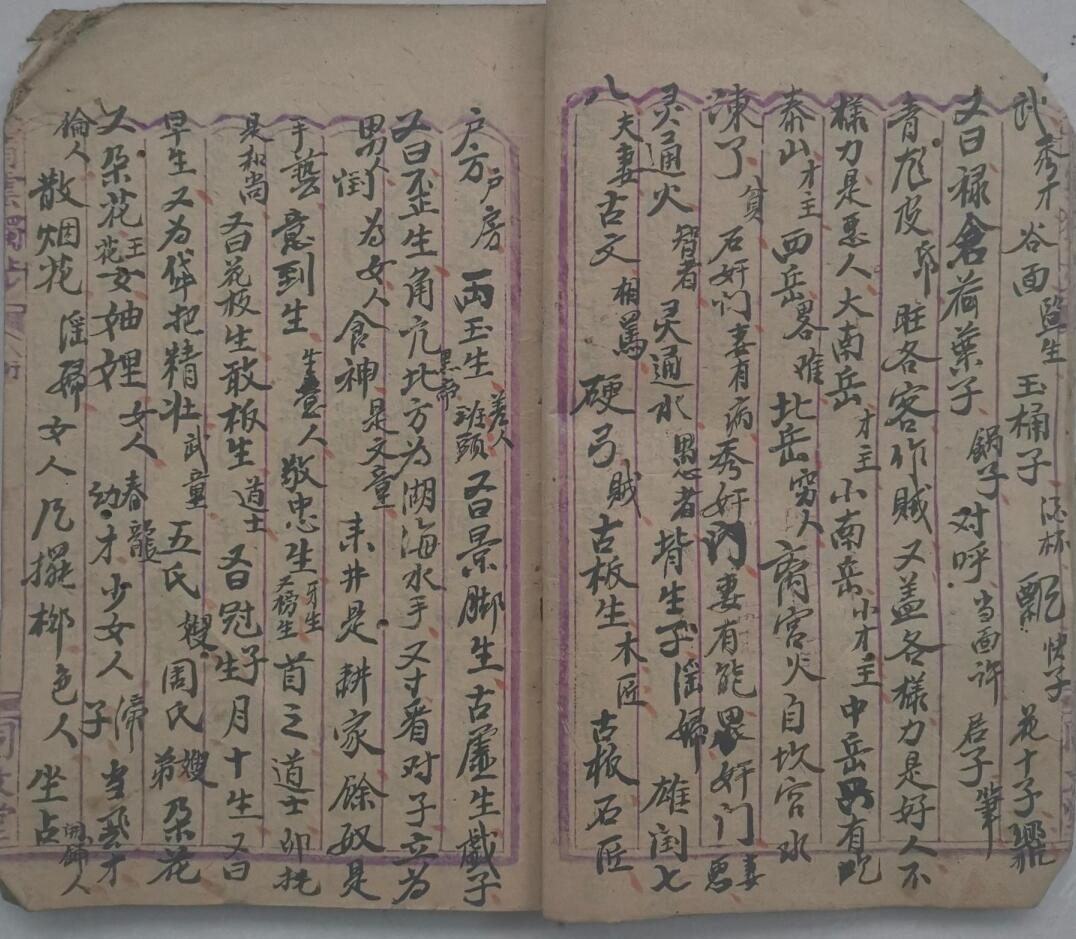 武秀才 谷面 监生 玉桶子 酒杯 瓢 快子 花十子
又曰禄倉荷葉子 鍋子 对呼 当面许 君子筆
青 皮 旺各客作贼又盖各樣力是好人不
樣力是恶人大南岳才主小南岳小才主中岳 有吃
泰山才主 西岳畧难 北岳窮人 离宫火自坎宫水
涷了 貧 石奸门妻有病秀奸门妻有能畏奸门妻恶
灵通火 智者 灵通水 愚者 背生子 淫婦 雄闰七
八夫妻古文 相罵 硬弓 贼 古板生木匠 古板石匠
户方户房 両玉生 班頭 差人 又曰景脚生古蘆生戯子
又曰歪生角亢北方黑帝为湖海水手又寸看对子立为
男人 为女人食神是文章耒井是耕家餘奴是
手藝意到生 生意人 敬忠生 牙生 又榜生 首之道士卯
是和尚又曰花板生敢板生道士又曰冠子生月十生又曰
早生又为 把精壮 武童 五氏嫂周氏弟嫂朵花
又朵花花王女妯娌女人春幼才少女人 子 当藝才
倫人散烟花 淫婦 女人 擺 色人 坐占 人